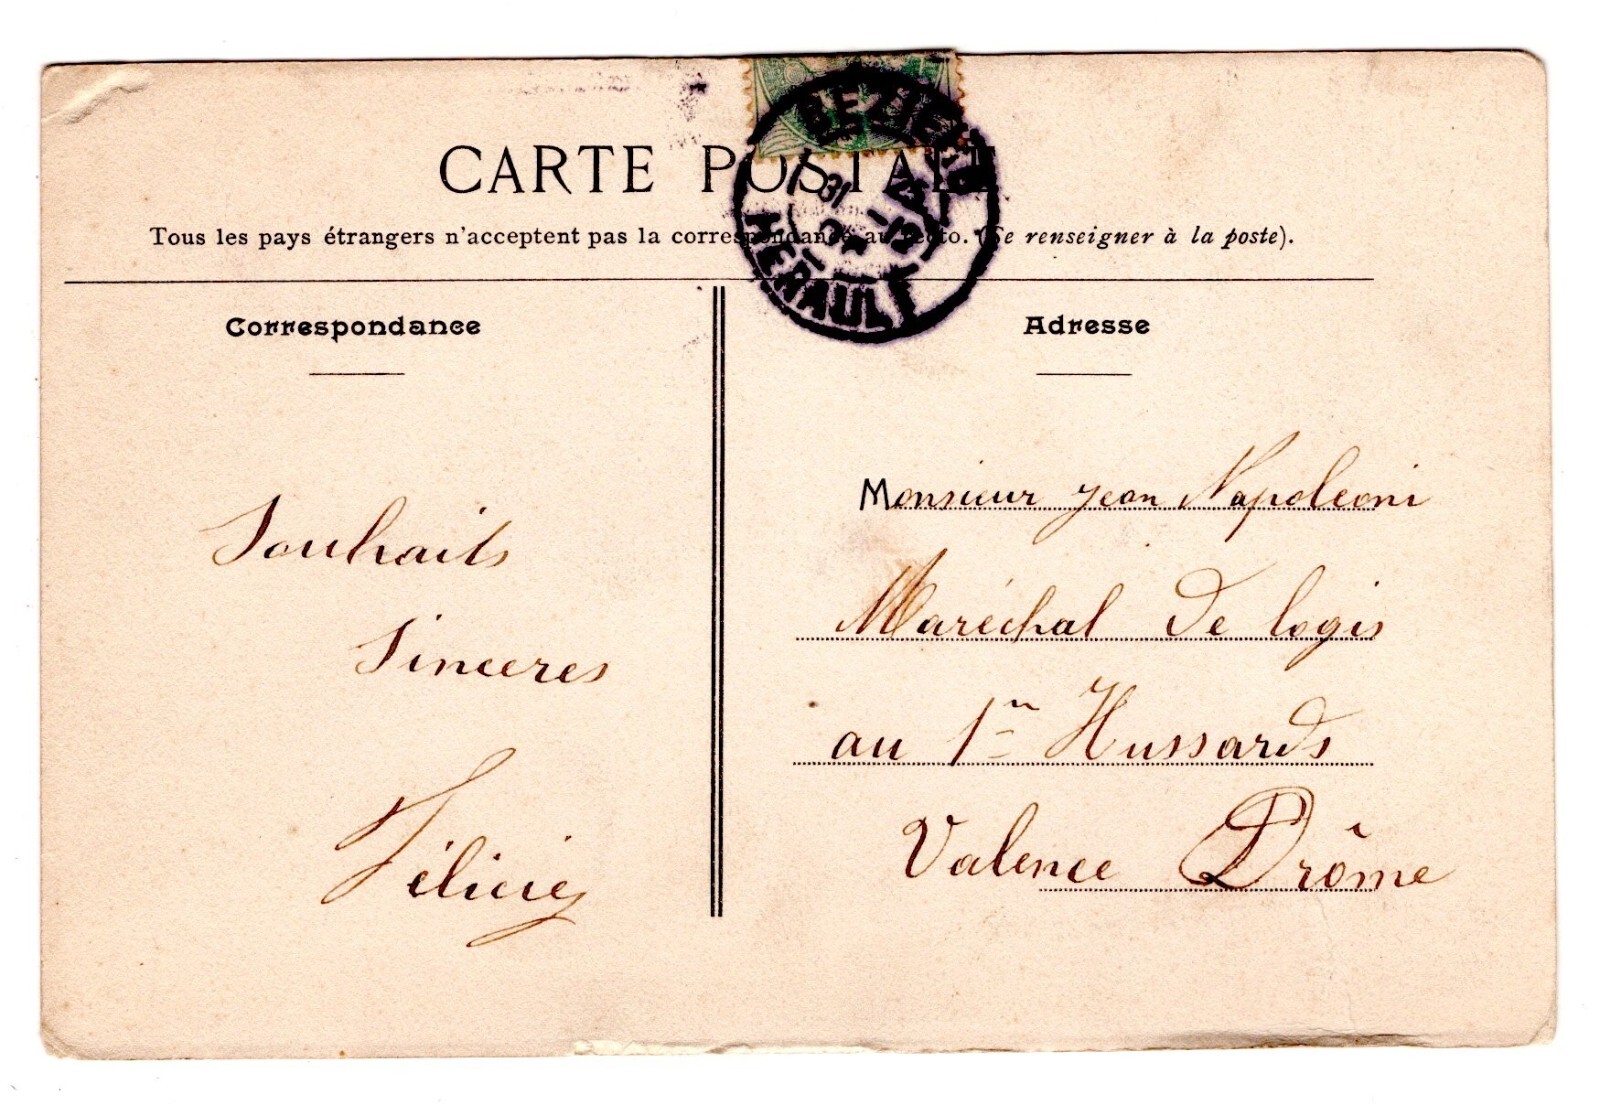 CARTE POSTALE
Tous les pays étrangers n'acceptent pas la correspondance au recto. (Se renseigner à la poste).
BEZIERS
HERAULT
Correspondance
Souhaits
Sinceres
Adresse
Monsieur Jean Napoleoni
Maréchal de logis
au 1er Hussards
Valence Drôme